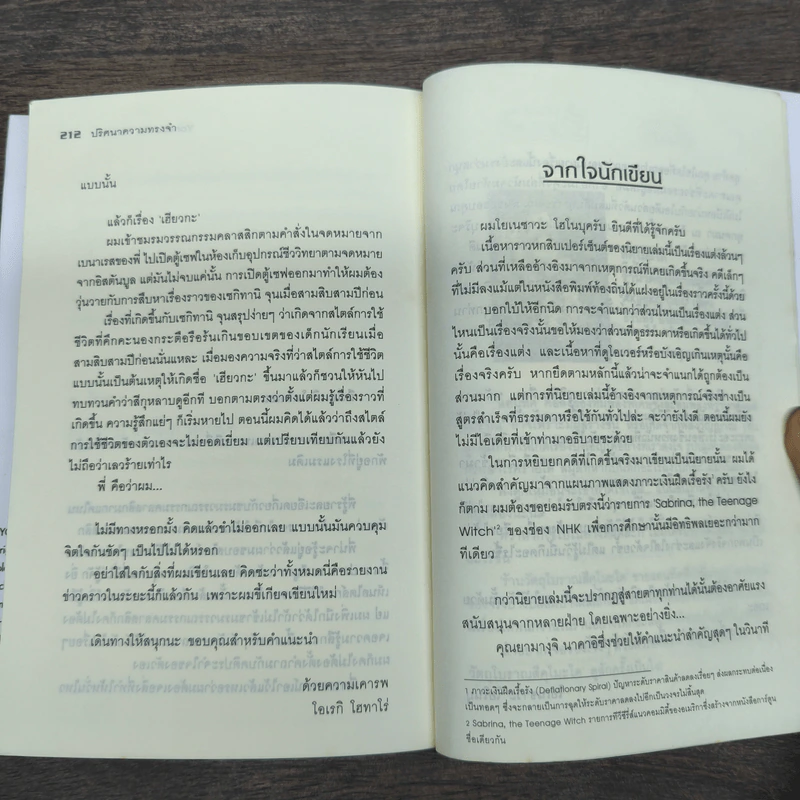 212 ปริศนาความทรงจำ
แบบนั้น
แล้วก็เรื่อง 'เฮียวกะ'
ผมเข้าชมรมวรรณกรรมคลาสสิกตามคำสั่งในจดหมายจาก
เบนาเรสของพี่ ไปเปิดตู้เซฟในห้องเก็บอุปกรณ์ชีววิทยาตามจดหมาย
จากอิสตันบูล แต่มันไม่จบแค่นั้น การเปิดตู้เซฟออกมาทำให้ผมต้อง
วุ่นวายกับการสืบหาเรื่องราวของเซกิทานิ จุนเมื่อสามสิบสามปีก่อน
เรื่องที่เกิดขึ้นกับเซกิทานิ จุนสรุปง่ายๆ ว่าเกิดจากสไตล์การใช้
ชีวิตที่คึกคะนองกระตือรือร้นเกินขอบเขตของเด็กนักเรียนเมื่อ
สามสิบสามปีก่อนนั่นแหละ เมื่อมองความจริงที่ว่าสไตล์การใช้ชีวิต
แบบนั้นเป็นต้นเหตุให้เกิดชื่อ 'เฮียวกะ' ขึ้นมาแล้วก็ชวนให้หันไป
ทบทวนคำว่าสีกุหลาบดูอีกที บอกตามตรงว่าตั้งแต่ผมรู้เรื่องราวที่
เกิดขึ้น ความรู้สึกแย่ๆ ก็เริ่มหายไป ตอนนี้ผมคิดได้แล้วว่าถึงสไตล์
การใช้ชีวิตของตัวเองจะไม่ยอดเยี่ยม แต่เปรียบเทียบกันแล้วยัง
ไม่ถือว่าเลวร้ายเท่าไร
พี่ คือว่าผม...
ไม่มีทางหรอกมั้ง คิดแล้วขำไม่ออกเลย แบบนั้นมันควบคุม
จิตใจกันชัดๆ เป็นไปไม่ได้หรอก
อย่าใส่ใจกับสิ่งที่ผมเขียนเลย คิดซะว่าทั้งหมดนี่คือรายงาน
ข่าวคราวในระยะนี้ก็แล้วกัน เพราะผมขี้เกียจเขียนใหม่
เดินทางให้สนุกนะ ขอบคุณสำหรับคำแนะนำ
ด้วยความเคารพ
โอเรกิ โฮทาโร่
จากใจนักเขียน
ผมโยเนซาวะ โฮโนบุครับ ยินดีที่ได้รู้จักครับ
เนื้อหาราวหกสิบเปอร์เซ็นต์ของนิยายเล่มนี้เป็นเรื่องแต่งล้วนๆ
ครับ ส่วนที่เหลืออ้างอิงมาจากเหตุการณ์ที่เคยเกิดขึ้นจริง คดีเล็กๆ
ที่ไม่มีลงแม้แต่ในหนังสือพิมพ์ท้องถิ่นได้แฝงอยู่ในเรื่องราวครั้งนี้ด้วย
บอกใบ้ให้อีกนิด การจะจำแนกว่าส่วนไหนเป็นเรื่องแต่ง ส่วน
ไหนเป็นเรื่องจริงนั้นขอให้มองว่าส่วนที่ดูธรรมดาหรือเกิดขึ้นได้ทั่วไป
นั้นคือเรื่องแต่ง และเนื้อหาที่ดูโอเวอร์หรือบังเอิญเกินเหตุนั้นคือ
เรื่องจริงครับ หากยึดตามหลักนี้แล้วน่าจะจำแนกได้ถูกต้องเป็น
ส่วนมาก แต่การที่นิยายเล่มนี้อ้างอิงจากเหตุการณ์จริงช่างเป็น
สูตรสำเร็จที่ธรรมดาหรือใช้กันทั่วไปล่ะ จะว่ายังไงดี ตอนนี้ผมยัง
ไม่มีไอเดียที่เข้าท่ามาอธิบายซะด้วย
ในการหยิบยกคดีที่เกิดขึ้นจริงมาเขียนเป็นนิยายนั้น ผมได้
แนวคิดสำคัญมาจากแผนภาพแสดงภาวะเงินฝืดเรื้อรัง¹ ครับ ยังไง
ก็ตาม ผมต้องขอยอมรับตรงนี้ว่ารายการ 'Sabrina, the Teenage
Witch'² ของช่อง NHK เพื่อการศึกษานั้นมีอิทธิพลเยอะกว่ามาก
ทีเดียว
กว่านิยายเล่มนี้จะปรากฏสู่สายตาทุกท่านได้นั้นต้องอาศัยแรง
สนับสนุนจากหลายฝ่าย โดยเฉพาะอย่างยิ่ง...
คุณยามางุจิ นาคาอิซึ่งช่วยให้คำแนะนำสำคัญสุดๆ ในวินาที
1 ภาวะเงินฝืดเรื้อรัง (Deflationary Spiral) ปัญหาระดับราคาสินค้าลดลงเรื่อยๆ ส่งผลกระทบต่อเนื่อง
เป็นทอดๆ ซึ่งจะกลายเป็นการฉุดให้ระดับราคาลดลงไปอีกเป็นวงจรไม่สิ้นสุด
2 Sabrina, the Teenage Witch รายการทีวีซีรีส์แนวคอมมิดี้ของอเมริกาซึ่งสร้างจากหนังสือการ์ตูน
ชื่อเดียวกัน